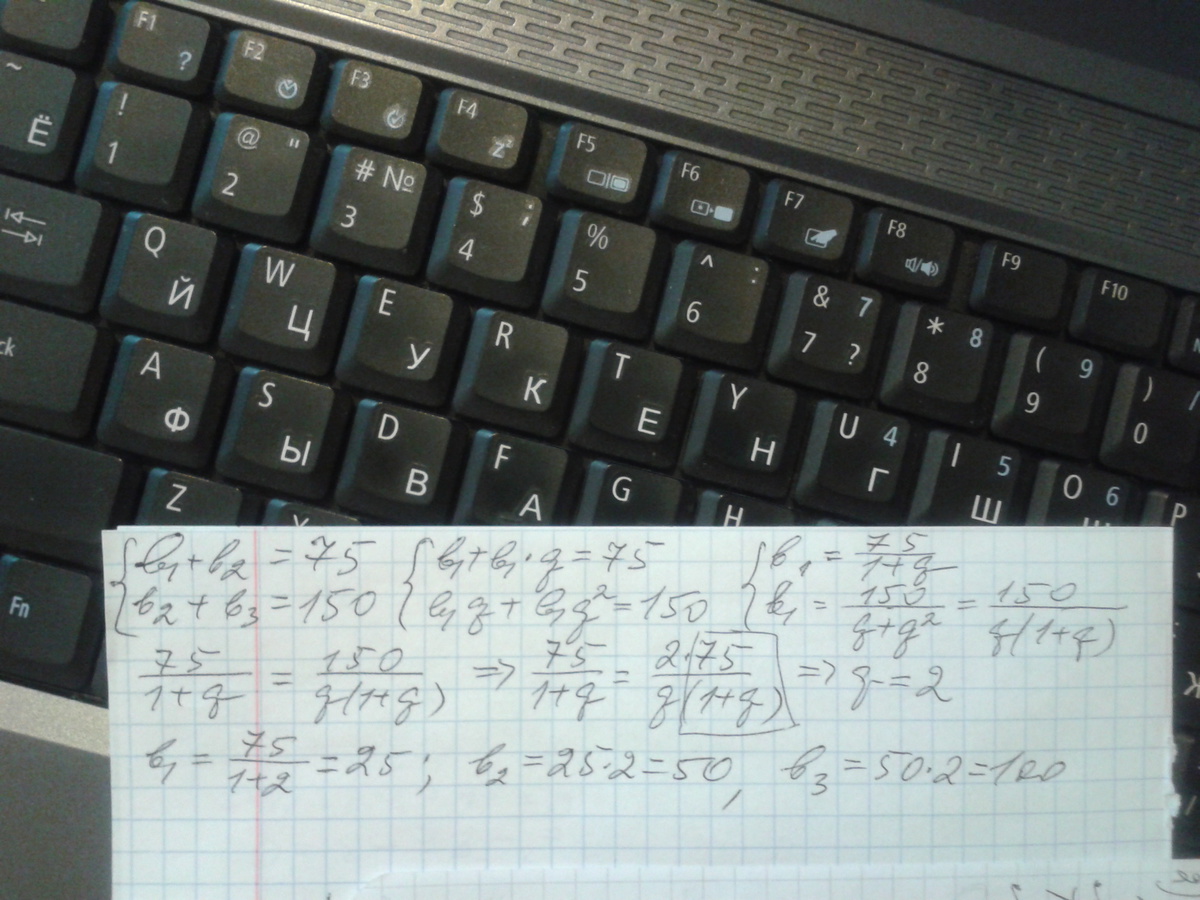 F1 ? F2 F3 F4 zᶻ F5 F6 F7 F8 F9 F10
~ Ё ! 1 @ " 2 # № 3 $ ; 4 % 5 ^ : 6 & 7 7 ? * 8 8 ( 9 9 ) 0
Q Й W Ц E У R К T Е Y Н U 4 Г I 5 Ш O 6 P
ck A Ф S Ы D В F А G H
Fn Z
{ b₁+b₂ = 75 { b₁+b₁·q = 75 { b₁ = 75/(1+q)
b₂+b₃ = 150 b₁q+b₁q² = 150 b₁ = 150/(q+q²) = 150/(q(1+q))
75/(1+q) = 150/(q(1+q)) => 75/(1+q) = 2·75/(q(1+q)) => q = 2
b₁ = 75/(1+2) = 25; b₂ = 25·2 = 50, b₃ = 50·2 = 100